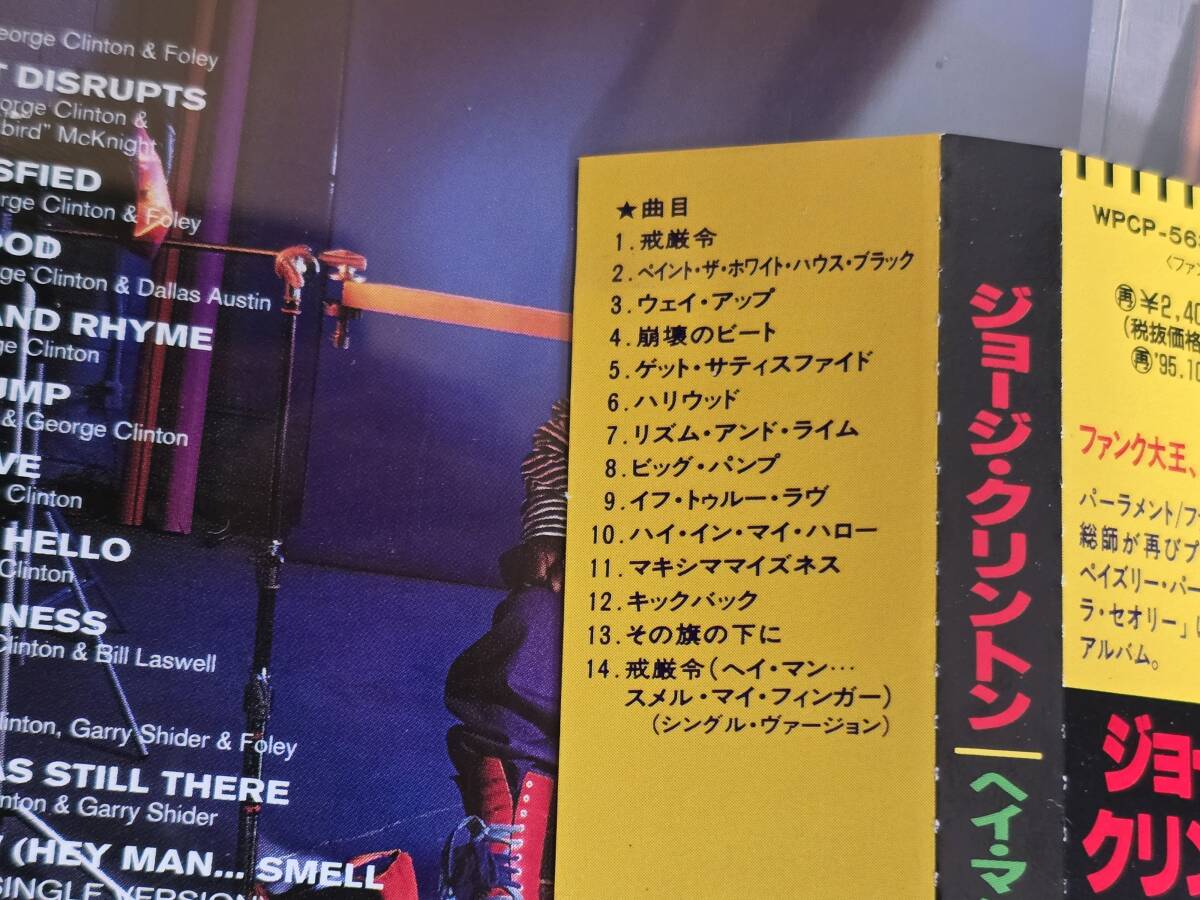 eorge Clinton & Foley
T DISRUPTS
orge Clinton &
bird" McKnight
SFIED
rge Clinton & Foley
OOD
ge Clinton & Dallas Austin
AND RHYME
ge Clinton
UMP
& George Clinton
VE
Clinton
HELLO
Clinton
NESS
Clinton & Bill Laswell
linton, Garry Shider & Foley
AS STILL THERE
nton & Garry Shider
(HEY MAN... SMELL
SINGLE VERSION
★曲目
1.戒厳令
2.ペイント・ザ・ホワイト・ハウス・ブラック
3.ウェイ・アップ
4.崩壊のビート
5.ゲット・サティスファイド
6.ハリウッド
7.リズム・アンド・ライム
8.ビッグ・パンプ
9.イフ・トゥルー・ラヴ
10.ハイ・イン・マイ・ハロー
11.マキシママイズネス
12.キックバック
13.その旗の下に
14.戒厳令(ヘイ・マン…
スメル・マイ・フィンガー)
(シングル・ヴァージョン)
ジョージ・クリントン
ヘイ・マ
WPCP-56
〈ファン
再¥2,40
(税抜価格
再'95.10
ファンク大王、
パーラメント/フ
総師が再びプ
ペイズリー・パー
ラ・セオリー」に
アルバム。
ジョー
クリン